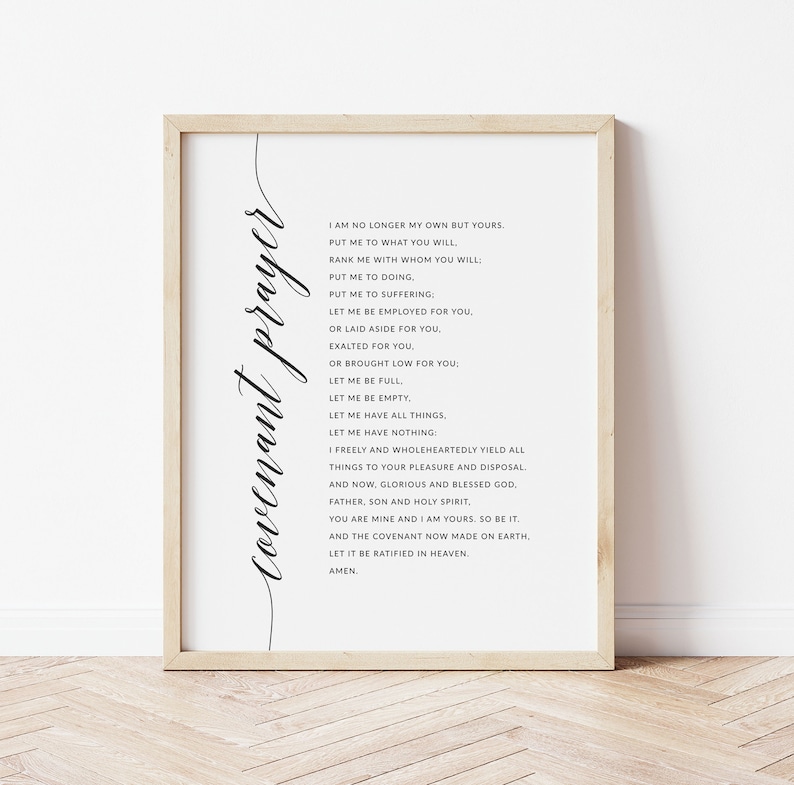 covenant prayer
I AM NO LONGER MY OWN BUT YOURS.
PUT ME TO WHAT YOU WILL,
RANK ME WITH WHOM YOU WILL;
PUT ME TO DOING,
PUT ME TO SUFFERING;
LET ME BE EMPLOYED FOR YOU,
OR LAID ASIDE FOR YOU,
EXALTED FOR YOU,
OR BROUGHT LOW FOR YOU;
LET ME BE FULL,
LET ME BE EMPTY,
LET ME HAVE ALL THINGS,
LET ME HAVE NOTHING:
I FREELY AND WHOLEHEARTEDLY YIELD ALL
THINGS TO YOUR PLEASURE AND DISPOSAL.
AND NOW, GLORIOUS AND BLESSED GOD,
FATHER, SON AND HOLY SPIRIT,
YOU ARE MINE AND I AM YOURS. SO BE IT.
AND THE COVENANT NOW MADE ON EARTH,
LET IT BE RATIFIED IN HEAVEN.
AMEN.